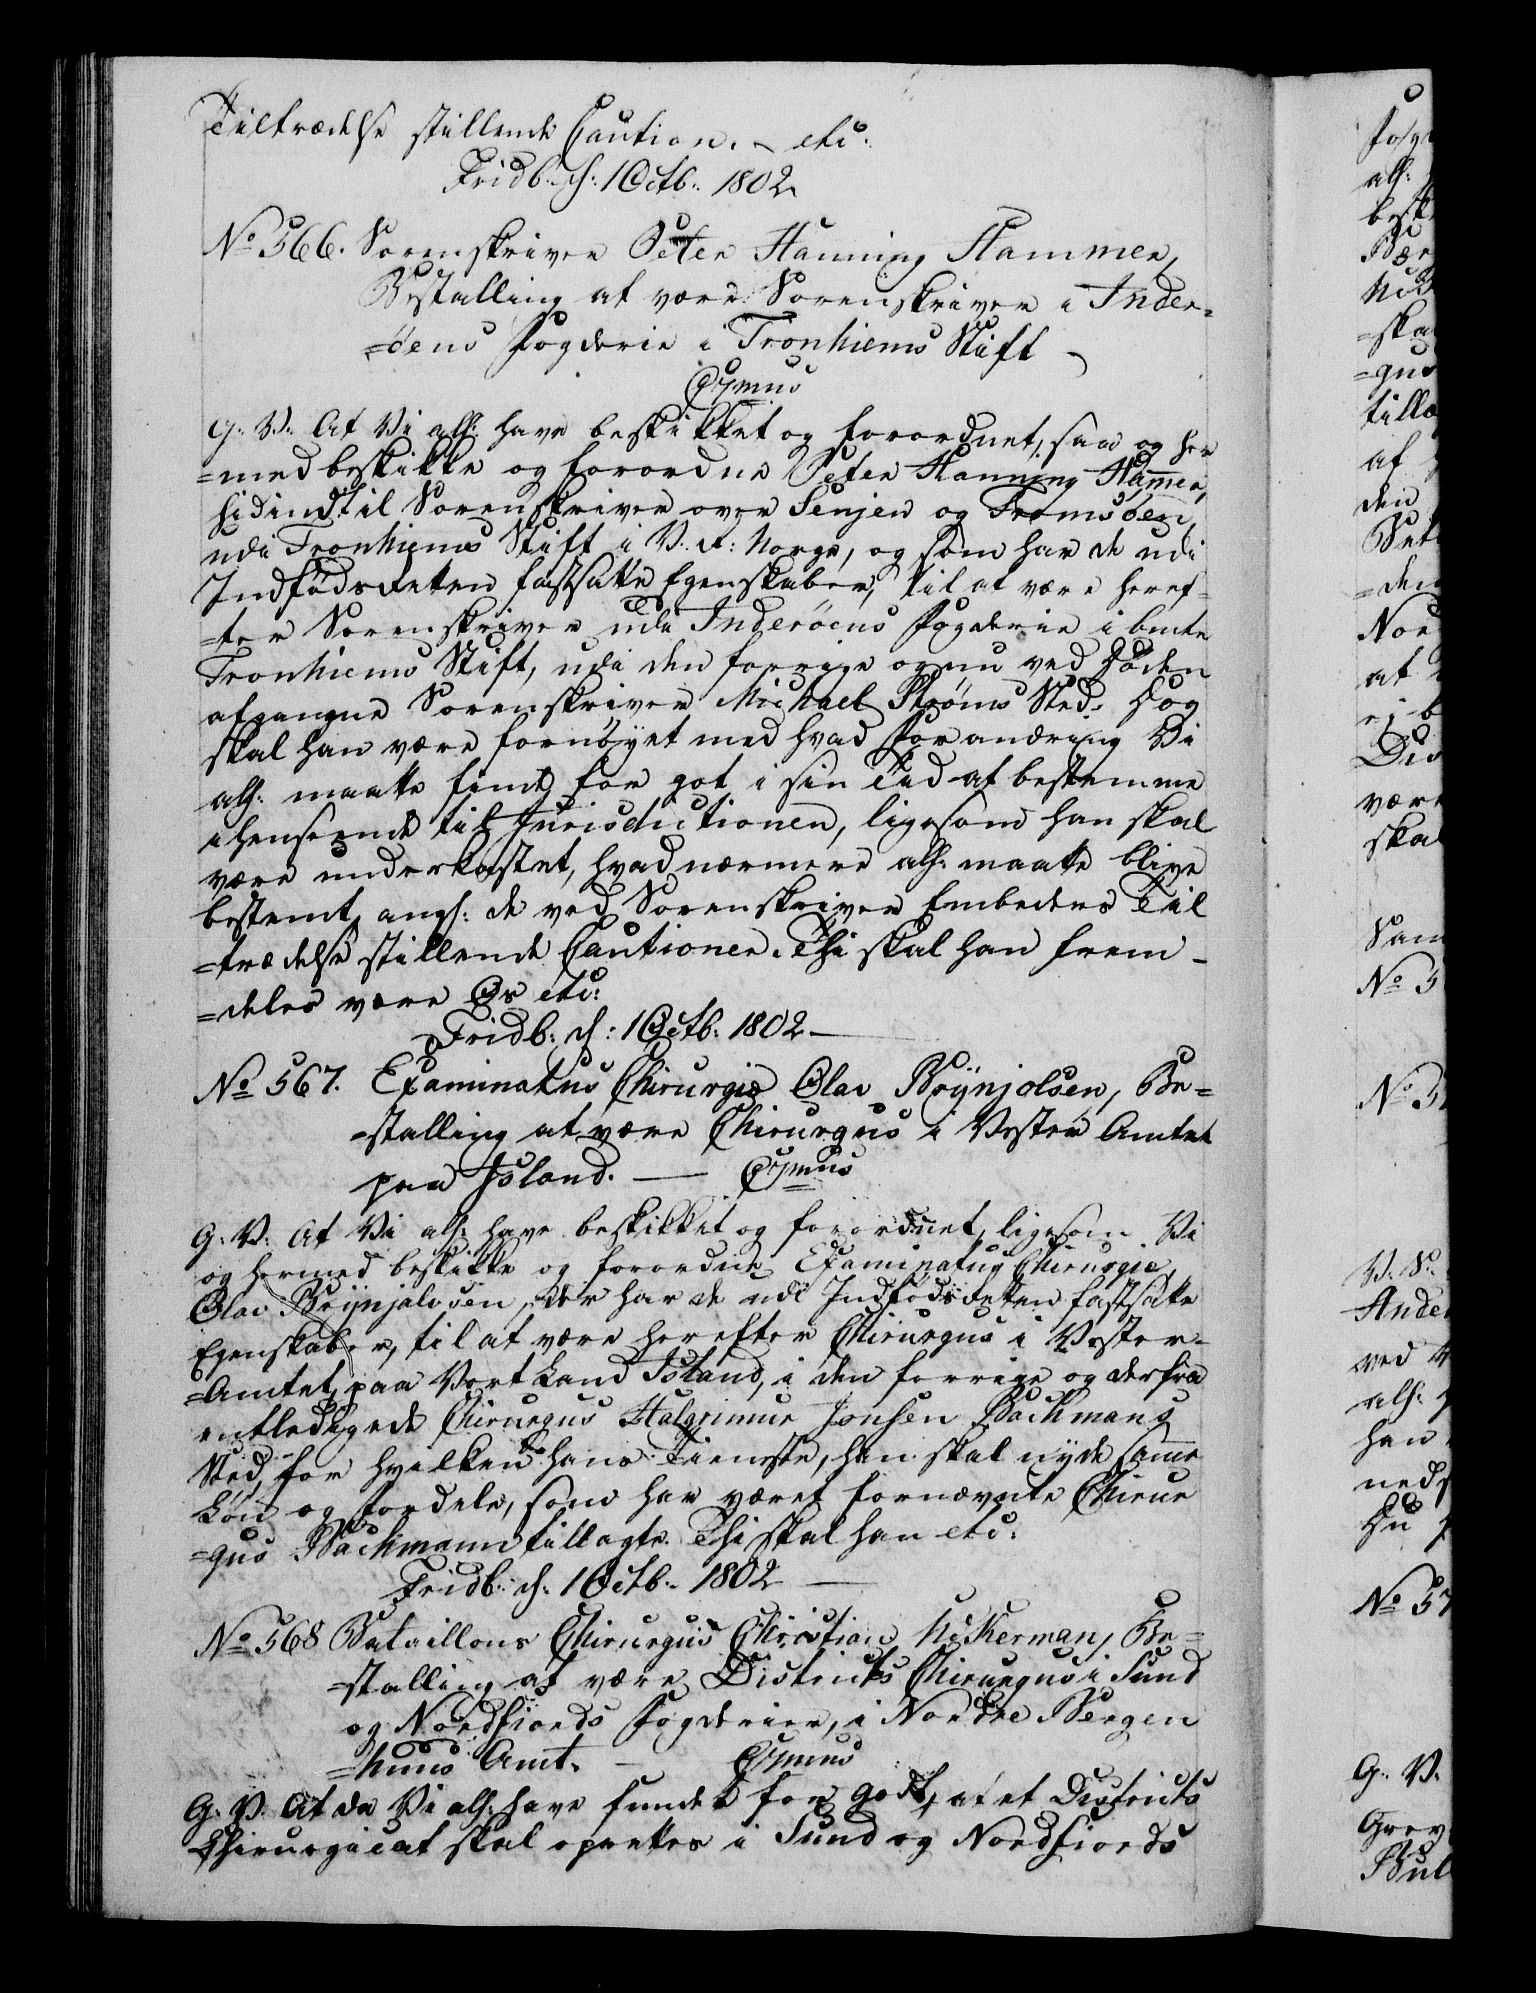 Tiltrædelse stillende Caution. – etc:
Fridb: d: 1 Octb: 1802
No 566. Sorenskriver Peter Hanning Hammer,
Bestalling at være Sorenskriver i Inder-
=öens Fogderie i Tronhiems Stift
Gratis
G: V: At Vi alh: have beskikket og forordnet, saa og her
=med beskikke og forordne Peter Hanning Hammer,
hidindtil Sorenskriver over Senjen og Tromsöen,
udi Tronhiems Stift i V. R: Norge, og som har de udi
Indfödsretten fastsatte Egenskaber, til at være heref-
=ter Sorenskriver udi Inderöens Fogderie i bmte
Tronhiems Stift, udi den forrige og nu ved Döden
afgangne Sorenskriver Michael Ströms Sted. Dog
skal han være fornöyet med hvad Forandring Vi
alh: maatte finde for got i sin Tid at bestemme
i henseende til Jurisdictionen, ligesom han skal
være underkastet, hvad nærmere alh: maatte blive
bestemt, angl: de ved Sorenskriver Embeders Til
=trædelse stillende Cautioner. Thi skal han frem-
=deles være Os etc:
Fridb: d: 1 Octb: 1802
No 567. Examinatus Chirurgiæ Olav Brÿnjolsen, Be=
=stalling at være Chirurgus i Vester Amtet
paa Island. —
G: V: At Vi alh: have beskikket og forordnet, ligesom Vi
og hermed beskikke og forordne Examinatus Chirurgiæ,
Olav Brÿnjolvsen, der har de udi Indfödsretten fastsatte
Egenskaber, til at være herefter Chirurgus i Vester-
=Amtet, paa Vort Land Island, i den forrige og derfra
entledigede Chirurgus Halgrimur Jonsen Bachmans
Sted, for hvilken hans Tieneste, han skal nÿde samme
Lön og Fordele, som har været fornævnte Chirur
=gus Bachmann tillagte. Thi skal han etc:
Fridb: d: 1 Octb: 1802 —
No 568 Bataillons Chirurgus Christian Nickerman, Be=
=stalling at være Districts Chirurgus i Sund
og Nordfiords Fogderier, i Nordre Bergen
=huus Amt.
G: V: At da Vi alh: have fundet for godt, at et Districts
Chirurgicat skal oprettes i Sund og Nordfiords